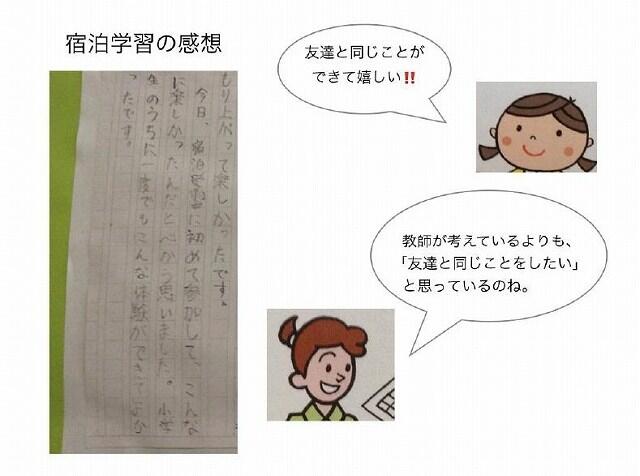 宿泊学習の感想
もり上がって楽しかったです。
今日、宿泊学習に初めて参加して、こんな
に楽しかったんだとべか う思いました。小学
生のうちに一度でもこんな体験ができてよか
ったです。
友達と同じことが
できて嬉しい‼
教師が考えているよりも、
「友達と同じことをしたい」
と思っているのね。